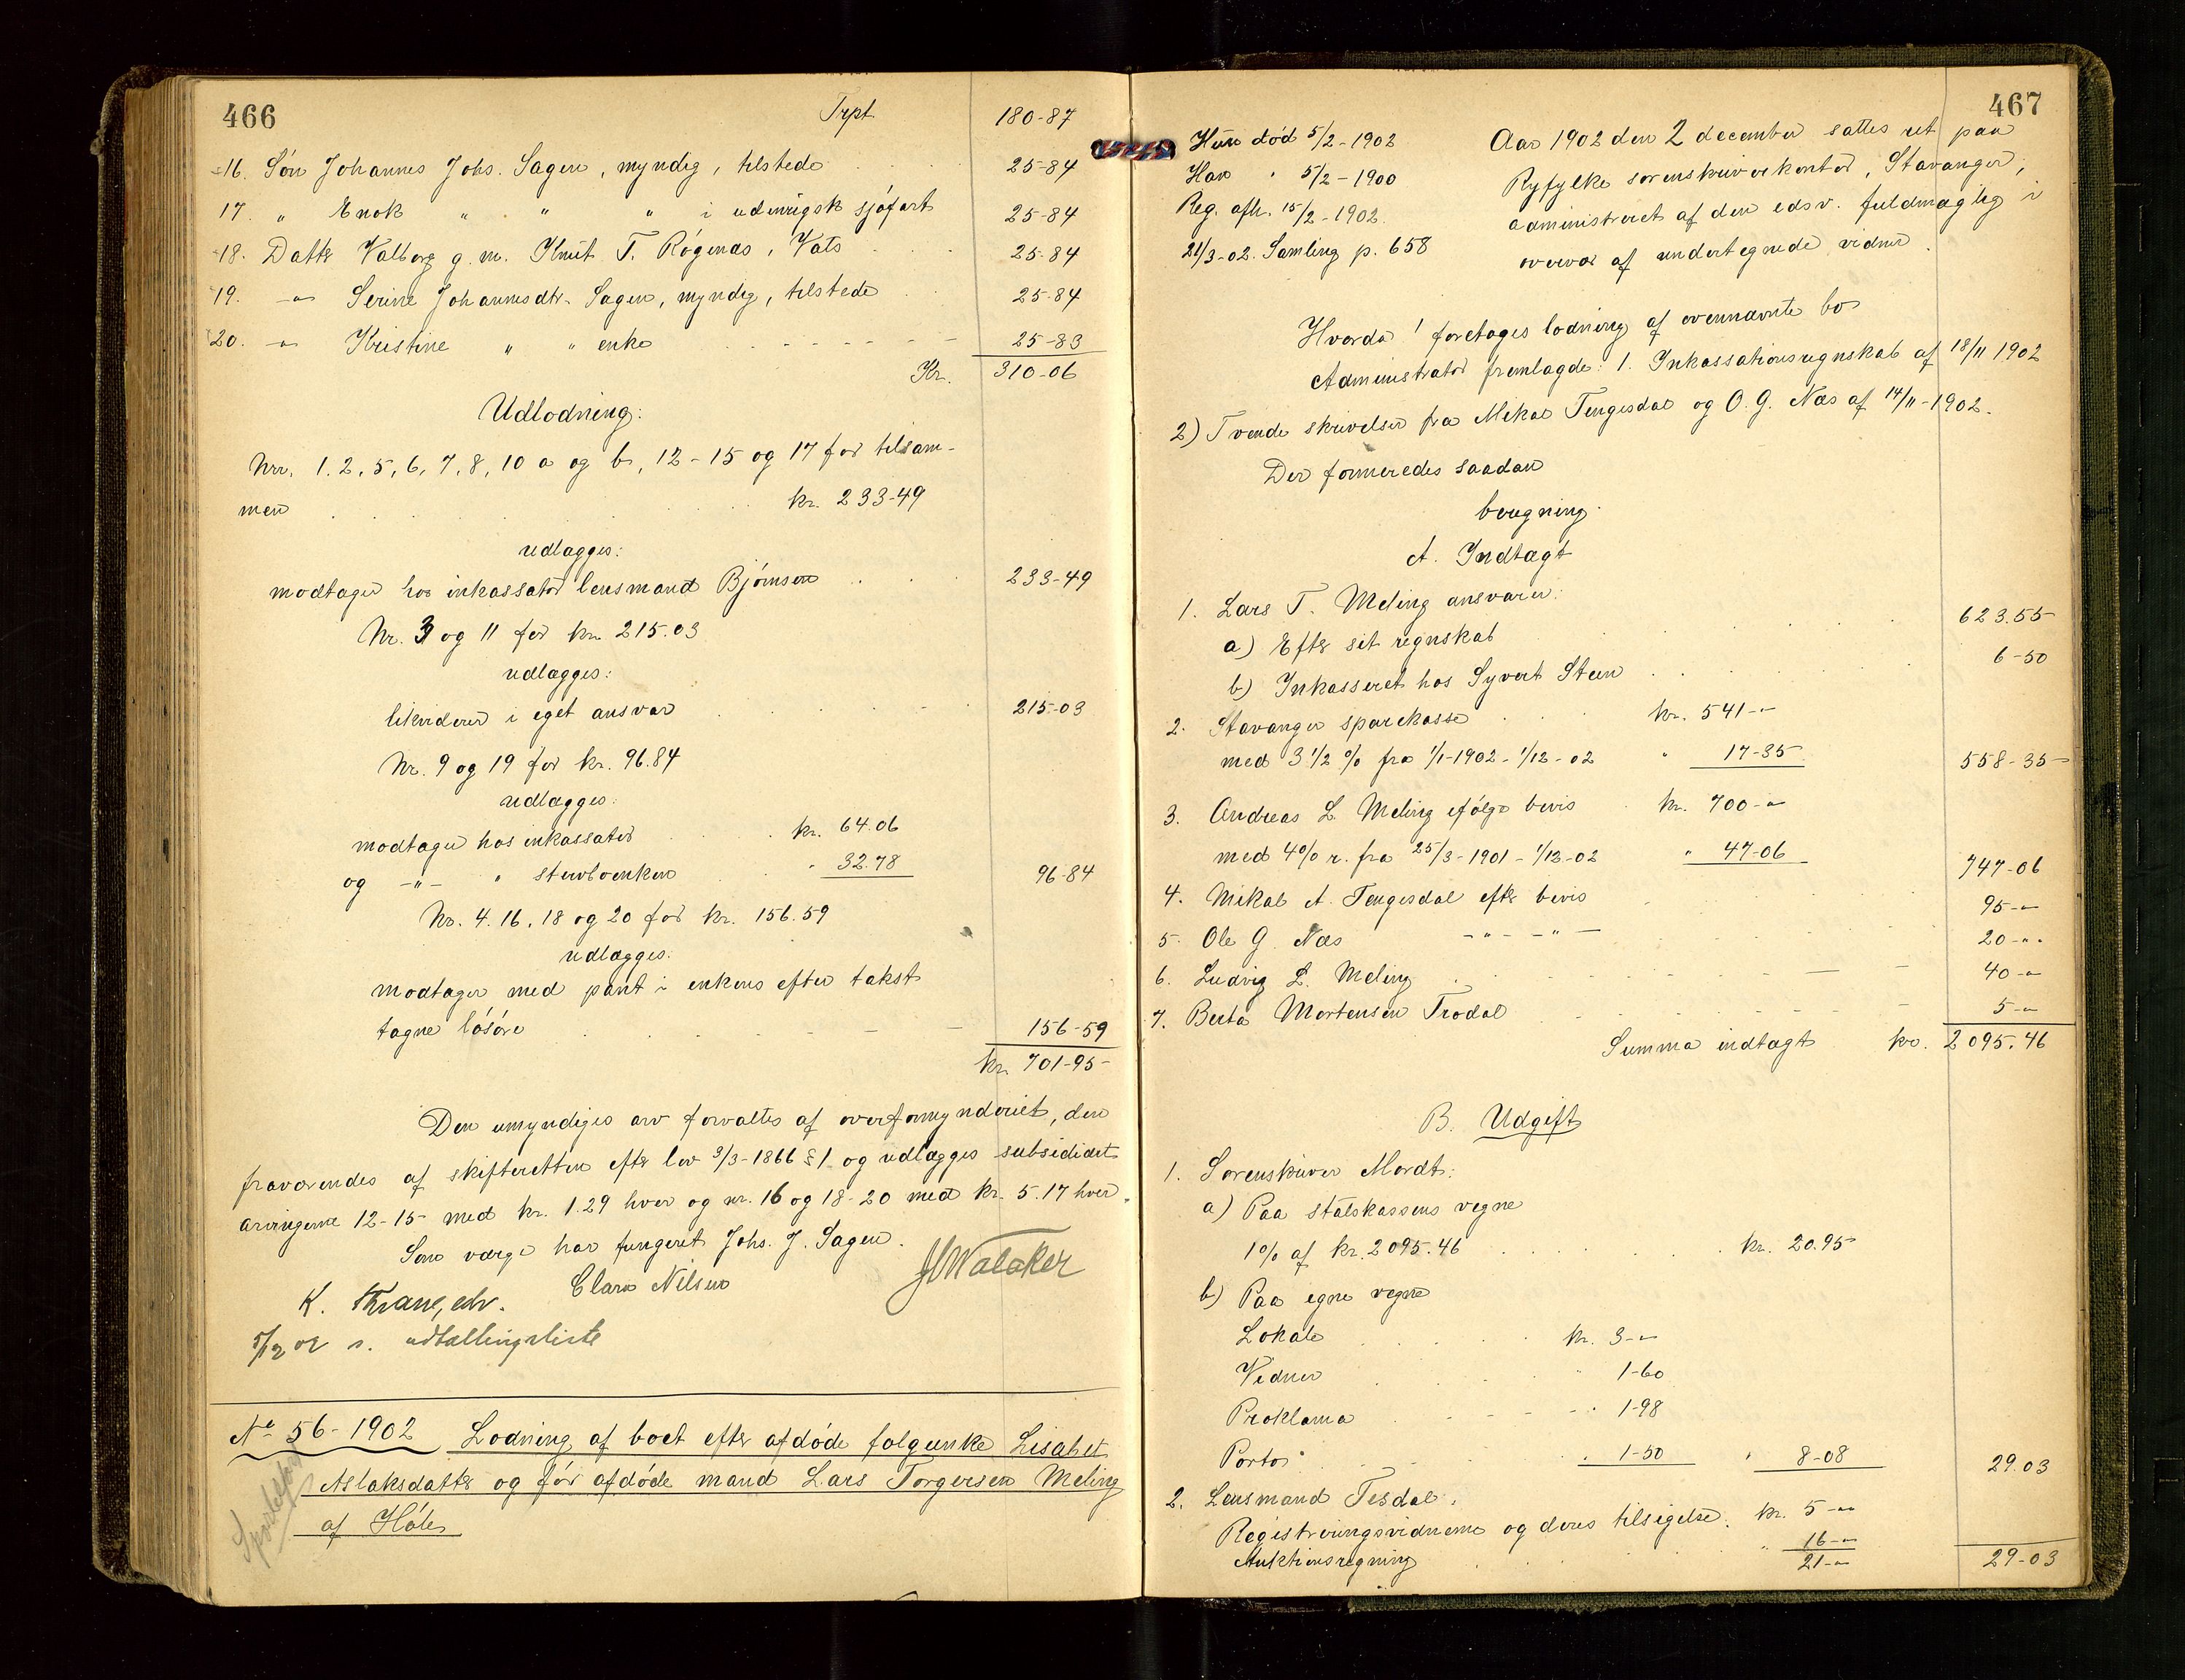 466
Trpt. 180-87
16. Søn Johannes Johs. Sagen, myndig, tilstede 25-84
17. " Enok " " " i udenrigsk sjøfart 25-84
18. Datter Valborg g. m. Knut T. Røgenæs, Vats 25-84
19. -"- Serine Johannesdtr. Sagen, myndig, tilstede 25-84
20. -"- Kristine " " enke 25-83
Kr. 310-06
Udlodning:
Nrr. 1, 2, 5, 6, 7, 8, 10 a og b, 12-15 og 17 for tilsam-
men kr. 233-49
udlægges:
modtager hos inkassator lensmand Bjørnsen 233-49
Nr. 3 og 11 for kr. 215.03
udlægges:
likviderer i eget ansvar 215-03
Nr. 9 og 19 for kr. 96.84
udlægges:
modtager hos inkassator kr. 64.06
og -"- " stervboenken " 32.78 96-84
Nr. 4. 16, 18 og 20 for kr. 156.59
udlægges:
modtager med pant i enkens efter takst
tagne løsøre 156-59
kr. 701-95
Den umyndiges arv forvaltes af overformynderiet, den
fraværendes af skifteretten efter lov 3/3-1866 § 1 og udlægges subsidiært
arvingerne 12-15 med kr. 1.29 hver og nr. 16 og 18-20 med kr. 5.17 hver.
Som værge har fungeret Johs. J. Sagen.
K. Thrane, edv. Clara Nilsen JWalaker
5/12 02 s. udtællingsliste
No 56-1902 Lodning af boet efter afdøde folgeenke Lisabet
Aslaksdatter og før afdøde mand Lars Torgersen Meling
af Høle
Sportelbog
467
Hun død 5/2-1902
Han " 5/2-1900
Reg. afh. 15/2-1902.
21/3-02. Samling p. 658
Aar 1902 den 2 december sattes ret paa
Ryfylke sorenskriverkontor, Stavanger,
administreret af den edsv. fuldmægtig i
overvær af undertegnede vidner.
Hvorda! foretoges lodning af ovennævnte bo
Administrator fremlagde: 1. Inkassationsregnskab af 18/11 1902
2) Tvende skrivelser fra Mikal Tengesdal og O. G. Næs af 14/11-1902.
Der formeredes saadan
beregning.
A. Indtægt
1. Lars T. Meling ansvarer:
a) Efter sit regnskab 623.55
b) Inkasseret hos Syvert Steen 6-50
2. Stavanger sparekasse kr. 541-"
med 3 1/2 % fra 1/1-1902 - 1/12-02 " 17-35 558-35
3. Andreas L. Meling ifølge bevis kr. 700-"
med 4% r. fra 25/3-1901 - 1/12-02 " 47-06 747-06
4. Mikal A. Tengesdal efter bevis 95-"
5. Ole G. Næs -"- -"- 20-"
6. Ludvig L. Meling 40-"
7. Berta Mortensen Trodal 5-"
Summa indtægt kr. 2095.46
B. Udgift
1. Sorenskriver Mordt:
a) Paa statskassens vegne
1% af kr. 2095.46 kr. 20.95
b) Paa egne vegne
Lokale kr. 3-"
Vidner " 1-60
Proklama " 1-98
Porto " 1-50 " 8-08 29.03
2. Lensmand Tesdal:
Registreringsvidnerne og deres tilsigelse kr. 5-"
Auktionsregning " 16-"
21-" 29-03